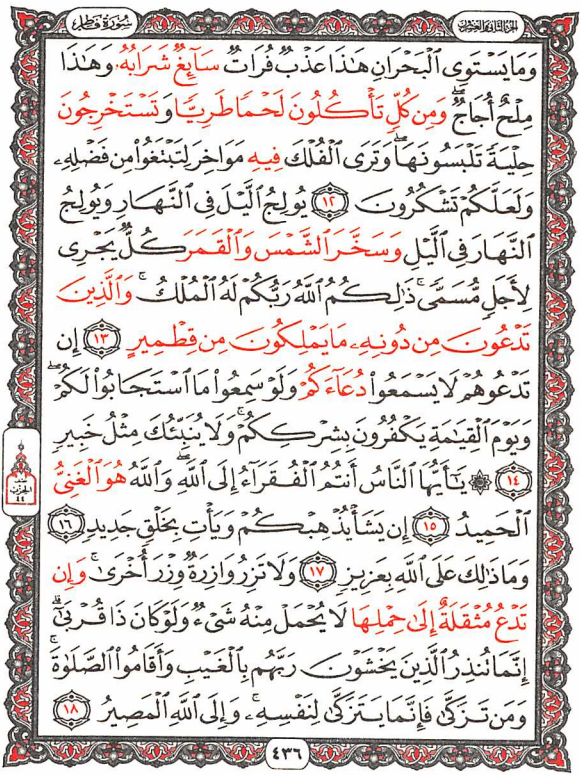 سورة فاطر
الجزء الثاني والعشرون
وَمَا يَسْتَوِى ٱلْبَحْرَانِ هَٰذَا عَذْبٌ فُرَاتٌ سَآئِغٌ شَرَابُهُۥ وَهَٰذَا
مِلْحٌ أُجَاجٌ ۖ وَمِن كُلٍّ تَأْكُلُونَ لَحْمًا طَرِيًّا وَتَسْتَخْرِجُونَ
حِلْيَةً تَلْبَسُونَهَا ۖ وَتَرَى ٱلْفُلْكَ فِيهِ مَوَاخِرَ لِتَبْتَغُوا۟ مِن فَضْلِهِۦ
وَلَعَلَّكُمْ تَشْكُرُونَ ١٢ يُولِجُ ٱلَّيْلَ فِى ٱلنَّهَارِ وَيُولِجُ
ٱلنَّهَارَ فِى ٱلَّيْلِ وَسَخَّرَ ٱلشَّمْسَ وَٱلْقَمَرَ كُلٌّ يَجْرِى
لِأَجَلٍ مُّسَمًّى ۚ ذَٰلِكُمُ ٱللَّهُ رَبُّكُمْ لَهُ ٱلْمُلْكُ ۚ وَٱلَّذِينَ
تَدْعُونَ مِن دُونِهِۦ مَا يَمْلِكُونَ مِن قِطْمِيرٍ ١٣ إِن
تَدْعُوهُمْ لَا يَسْمَعُوا۟ دُعَآءَكُمْ وَلَوْ سَمِعُوا۟ مَا ٱسْتَجَابُوا۟ لَكُمْ ۖ
وَيَوْمَ ٱلْقِيَٰمَةِ يَكْفُرُونَ بِشِرْكِكُمْ ۚ وَلَا يُنَبِّئُكَ مِثْلُ خَبِيرٍ
١٤ ۞ يَٰٓأَيُّهَا ٱلنَّاسُ أَنتُمُ ٱلْفُقَرَآءُ إِلَى ٱللَّهِ ۖ وَٱللَّهُ هُوَ ٱلْغَنِىُّ
ٱلْحَمِيدُ ١٥ إِن يَشَأْ يُذْهِبْكُمْ وَيَأْتِ بِخَلْقٍ جَدِيدٍ ١٦
وَمَا ذَٰلِكَ عَلَى ٱللَّهِ بِعَزِيزٍ ١٧ وَلَا تَزِرُ وَازِرَةٌ وِزْرَ أُخْرَىٰ ۚ وَإِن
تَدْعُ مُثْقَلَةٌ إِلَىٰ حِمْلِهَا لَا يُحْمَلْ مِنْهُ شَىْءٌ وَلَوْ كَانَ ذَا قُرْبَىٰٓ ۗ
إِنَّمَا تُنذِرُ ٱلَّذِينَ يَخْشَوْنَ رَبَّهُم بِٱلْغَيْبِ وَأَقَامُوا۟ ٱلصَّلَوٰةَ ۚ
وَمَن تَزَكَّىٰ فَإِنَّمَا يَتَزَكَّىٰ لِنَفْسِهِۦ ۚ وَإِلَى ٱللَّهِ ٱلْمَصِيرُ ١٨
نصف
الحزب
٤٤
٤٣٦